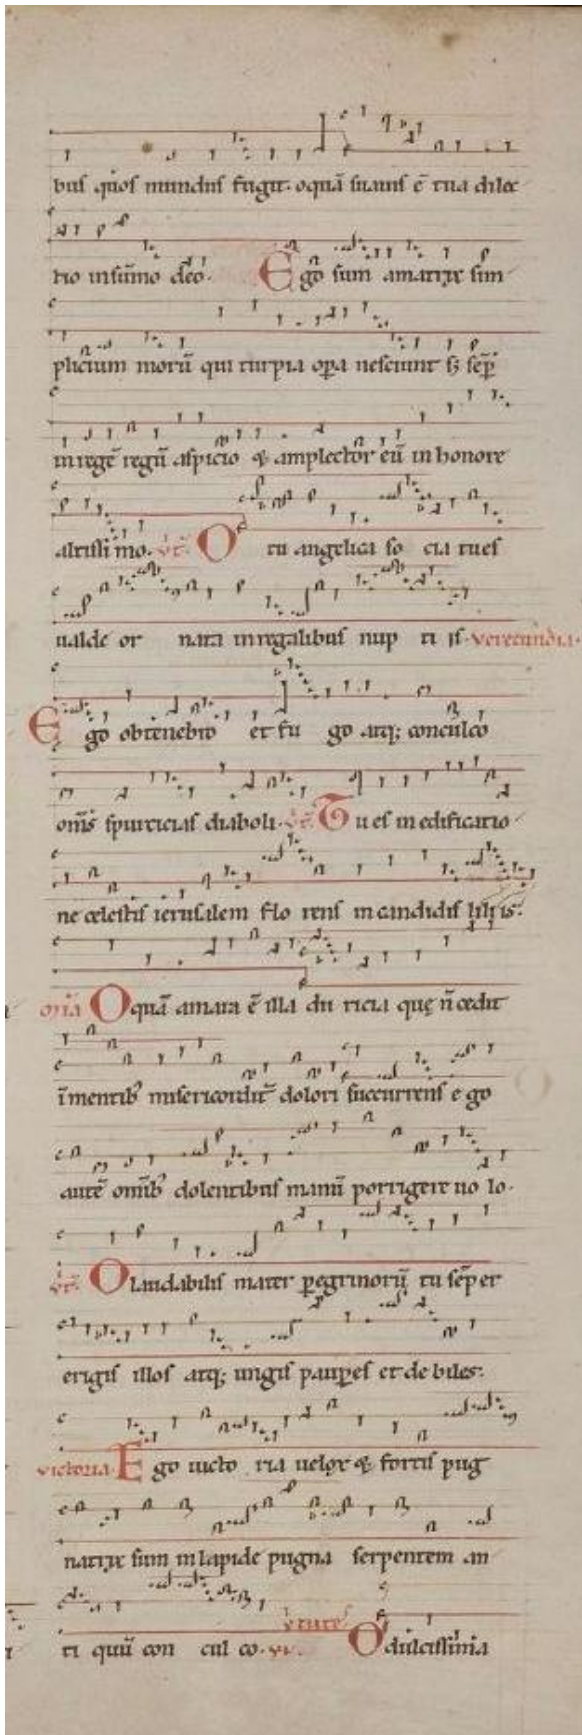 bus quos mundus fugit. o quā suavis ē tua dilec
tio in sūmo deo. Ego sum amatrix sim
plicium morū qui turpia opa nesciunt sꝫ semp
in regē regū aspicio & amplector eū in honore
altissimo. vt̄. O tu angelica socia tu es
ualde ornata in regalibus nuptiis. verecundia.
Ego obtenebro et fugo atq; conculco
om̄s spurcicias diaboli. vt̄. Tu es in edificatio
ne celestis ierusalem florens in candidis liliis.
O quā amara ē illa duricia quę n̄ cedit
ī mentib; misericordit̄ dolori succurrens ego
autē om̄ib; dolentibus manū porrigere uolo.
vt̄. O laudabilis mater pegrinorū tu semper
erigis illos atq; ungis paupes et debiles.
victoria. Ego victoria velox & fortis pug
natrix sum in lapide pugna serpentem an
tiquū conculco. vv. vtutes O dulcissima